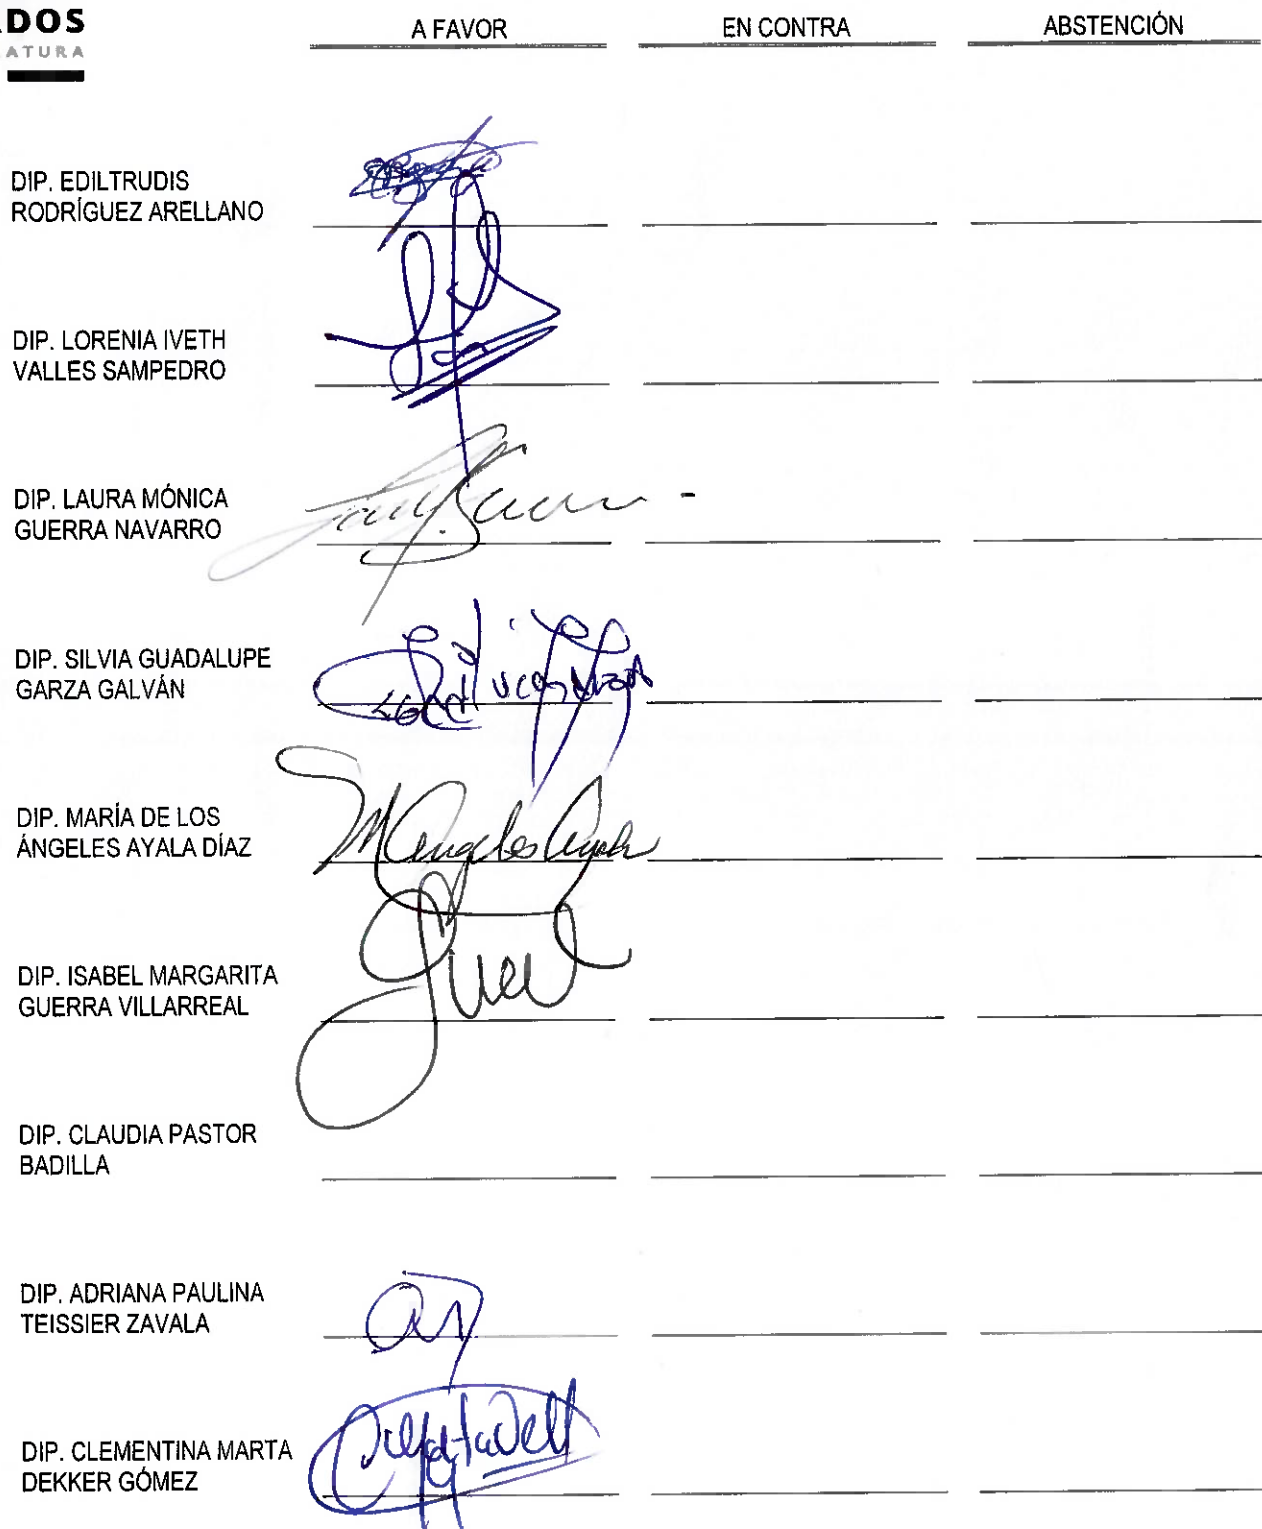 ADOS
ATURA
A FAVOR EN CONTRA ABSTENCIÓN
DIP. EDILTRUDIS
RODRÍGUEZ ARELLANO
DIP. LORENIA IVETH
VALLES SAMPEDRO
DIP. LAURA MÓNICA
GUERRA NAVARRO
DIP. SILVIA GUADALUPE
GARZA GALVÁN
DIP. MARÍA DE LOS
ÁNGELES AYALA DÍAZ
M Angeles Ayala
DIP. ISABEL MARGARITA
GUERRA VILLARREAL
DIP. CLAUDIA PASTOR
BADILLA
DIP. ADRIANA PAULINA
TEISSIER ZAVALA
DIP. CLEMENTINA MARTA
DEKKER GÓMEZ